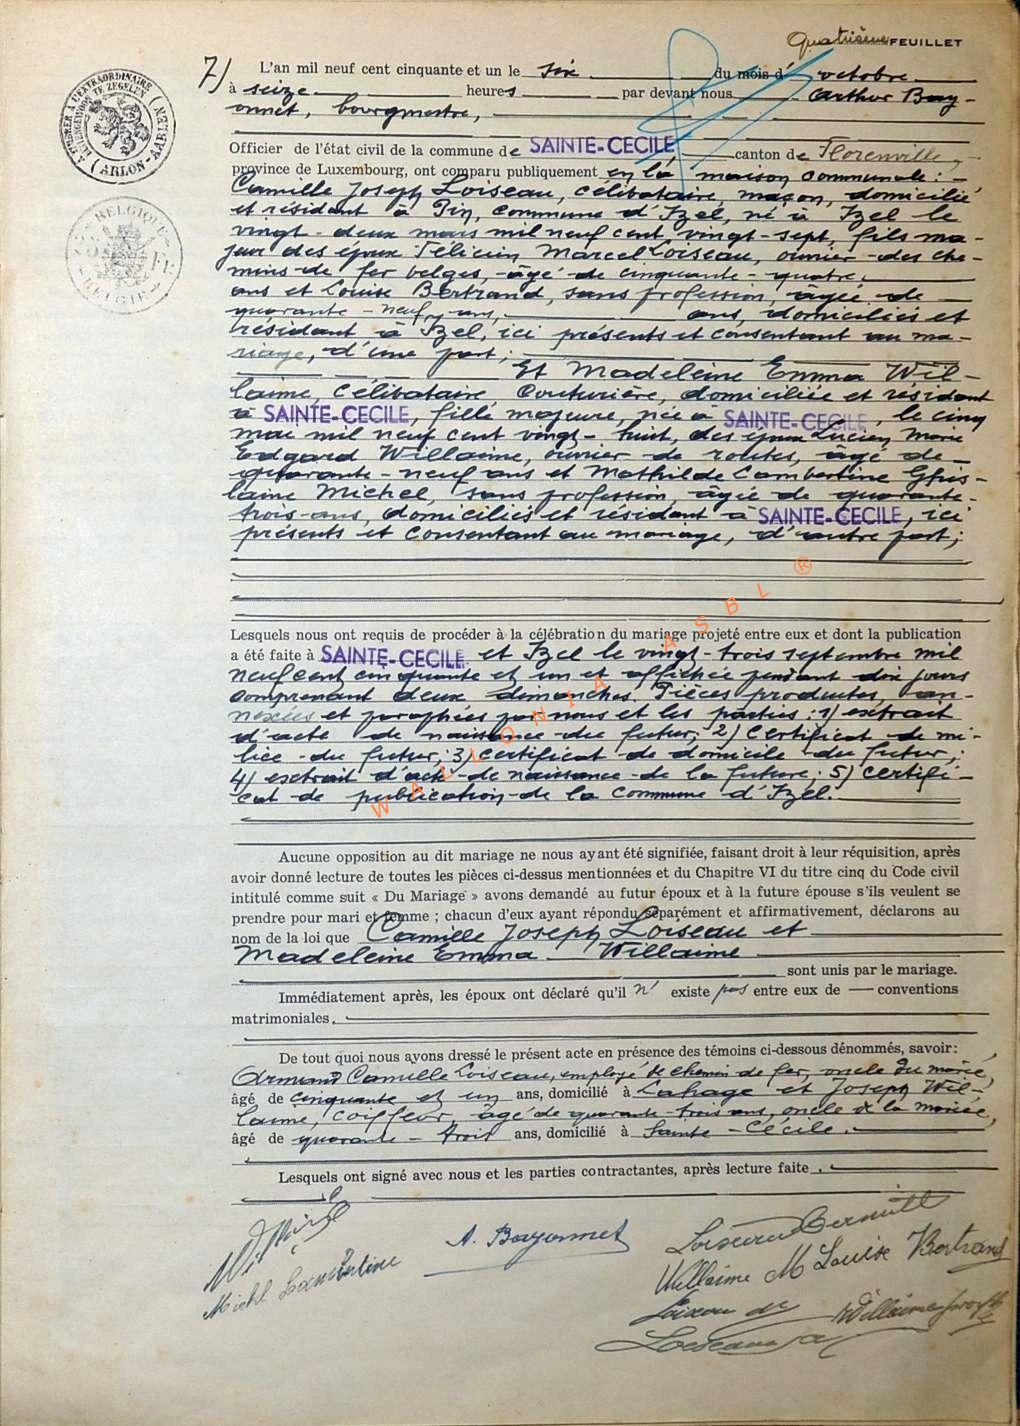 Quatrième FEUILLET
7) L'an mil neuf cent cinquante et un le six du mois d' octobre
à seize heures par devant nous Arthur Bay-
onnet, bourgmestre,
Officier de l'état civil de la commune de SAINTE-CECILE canton de Florenville,
province de Luxembourg, ont comparu publiquement en la maison communale :
Camille Joseph Loiseau, célibataire, maçon, domicilié
et résidant à Pin, commune d'Izel, né à Izel le
vingt-deux mars mil neuf cent vingt-sept, fils ma-
jeur des époux Félicien Marcel Loiseau, ouvrier des che-
mins de fer belges, âgé de cinquante-quatre
ans et Louise Bertrand, sans profession, âgée de
quarante-neuf ans, ans, domiciliés et
résidant à Izel, ici présents et consentant au ma-
riage, d'une part ;
Et Madeleine Emma Wil-
laime, célibataire Couturière, domiciliée et résidant
à SAINTE-CECILE, fille majeure, née à SAINTE-CECILE, le cinq
mai mil neuf cent vingt-huit, des époux Lucien Marie
Edgard Willaime, ouvrier de routes, âgé de
quarante-neuf ans et Mathilde Lambertine Ghis-
laine Michel, sans profession, âgée de quarante-
trois ans, domiciliés et résidant à SAINTE-CECILE, ici
présents et consentant au mariage, d'autre part ;
Lesquels nous ont requis de procéder à la célébration du mariage projeté entre eux et dont la publication
a été faite à SAINTE-CECILE et Izel le vingt-trois septembre mil
neuf cent cinquante et un et affichée pendant dix jours
comprenant deux dimanches. Pièces produites, an-
nexées et paraphées par nous et les parties : 1) extrait
d'acte de naissance du futur ; 2) Certificat de mi-
lice du futur ; 3) certificat de domicile du futur ;
4) extrait d'acte de naissance de la future ; 5) certifi-
cat de publication de la commune d'Izel.
Aucune opposition au dit mariage ne nous ayant été signifiée, faisant droit à leur réquisition, après
avoir donné lecture de toutes les pièces ci-dessus mentionnées et du Chapitre VI du titre cinq du Code civil
intitulé comme suit « Du Mariage » avons demandé au futur époux et à la future épouse s'ils veulent se
prendre pour mari et femme ; chacun d'eux ayant répondu séparément et affirmativement, déclarons au
nom de la loi que Camille Joseph Loiseau et
Madeleine Emma Willaime
sont unis par le mariage.
Immédiatement après, les époux ont déclaré qu'il n' existe pas entre eux de conventions
matrimoniales.
De tout quoi nous avons dressé le présent acte en présence des témoins ci-dessous dénommés, savoir :
Armand Camille Loiseau, employé de chemin de fer, oncle du marié,
âgé de cinquante et un ans, domicilié à Lahage et Joseph Wil-
laime, coiffeur, âgé de quarante-trois ans, oncle de la mariée,
âgé de quarante-trois ans, domicilié à Sainte-Cécile.
Lesquels ont signé avec nous et les parties contractantes, après lecture faite.
Michel Lambertine
A. Bayonnet
Loiseau
Willaime M Louise Bertrand
Willaime Joseph
Loiseau
A TIMBRER A L'EXTRAORDINAIRE
BUITENGEWOON TE ZEGELEN
(ARLON-AARLEN)
BELGIQUE
BELGIË
WALLONIA ASBL ®